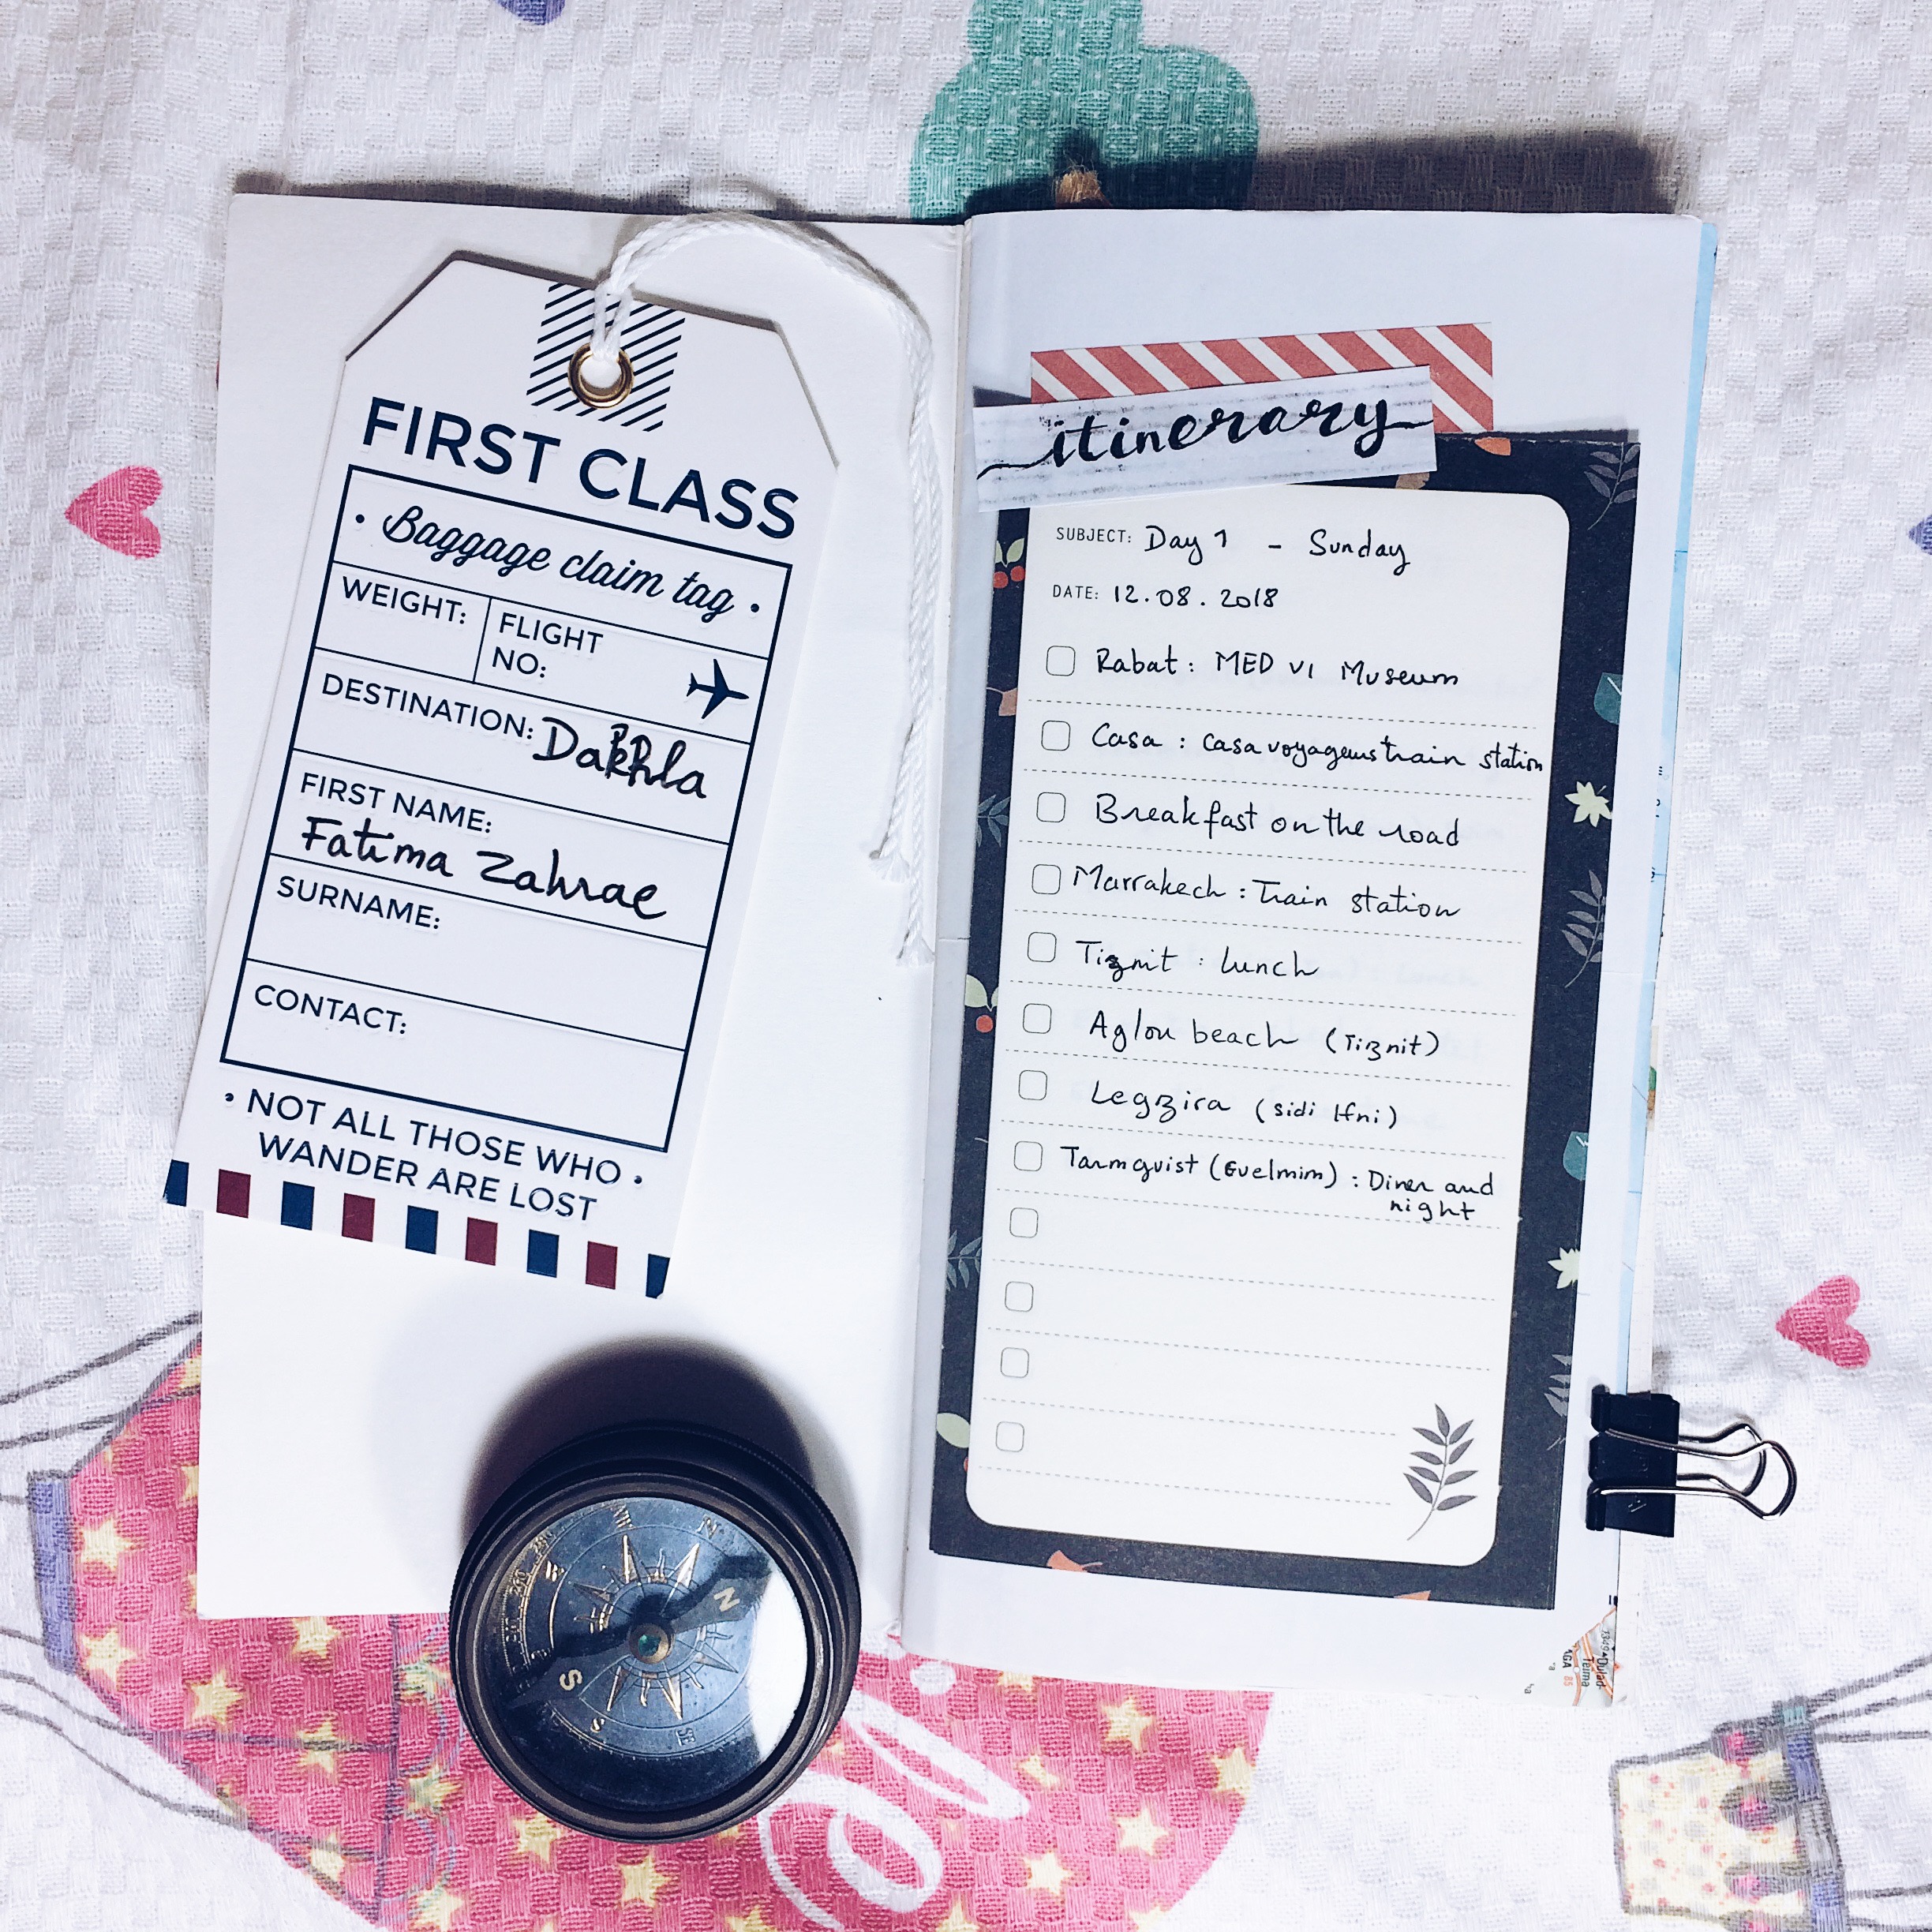 FIRST CLASS
• Baggage claim tag •
WEIGHT:
FLIGHT
NO:
DESTINATION: Dakhla
FIRST NAME:
Fatima Zahrae
SURNAME:
CONTACT:
• NOT ALL THOSE WHO •
WANDER ARE LOST
itinerary
SUBJECT: Day 1 - Sunday
DATE: 12.08.2018
Rabat : MED VI Museum
Casa : Casa voyageurs train station
Breakfast on the road
Marrakech : Train station
Tiznit : lunch
Aglou beach (Tiznit)
Legzira (sidi Ifni)
Tarmguist (Guelmim) : Diner and
night
N
W
N
S
S
SE